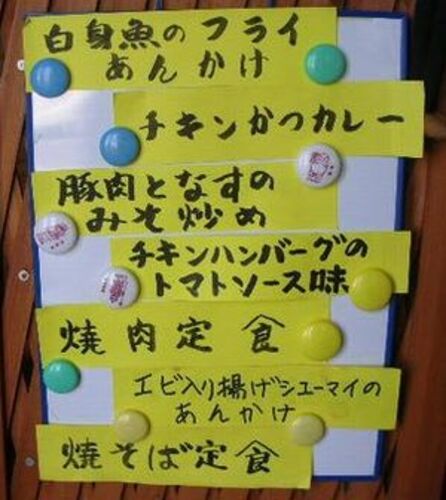 白身魚のフライ
あんかけ
チキンかつカレー
豚肉となすの
みそ炒め
チキンハンバーグの
トマトソース味
焼肉定食
エビ入り揚げシューマイの
あんかけ
焼そば定食